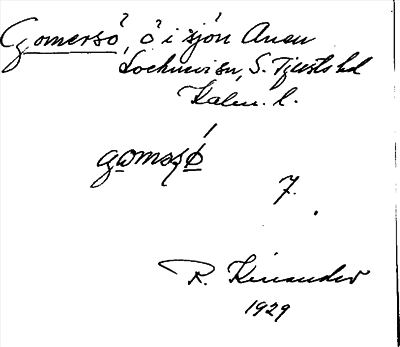 Gomersö, ö i sjön Ånsu
Lochnevi sn, S. Tjusts hd
Kalm. l.
goməʂö́
7.
R. Kinander
1929